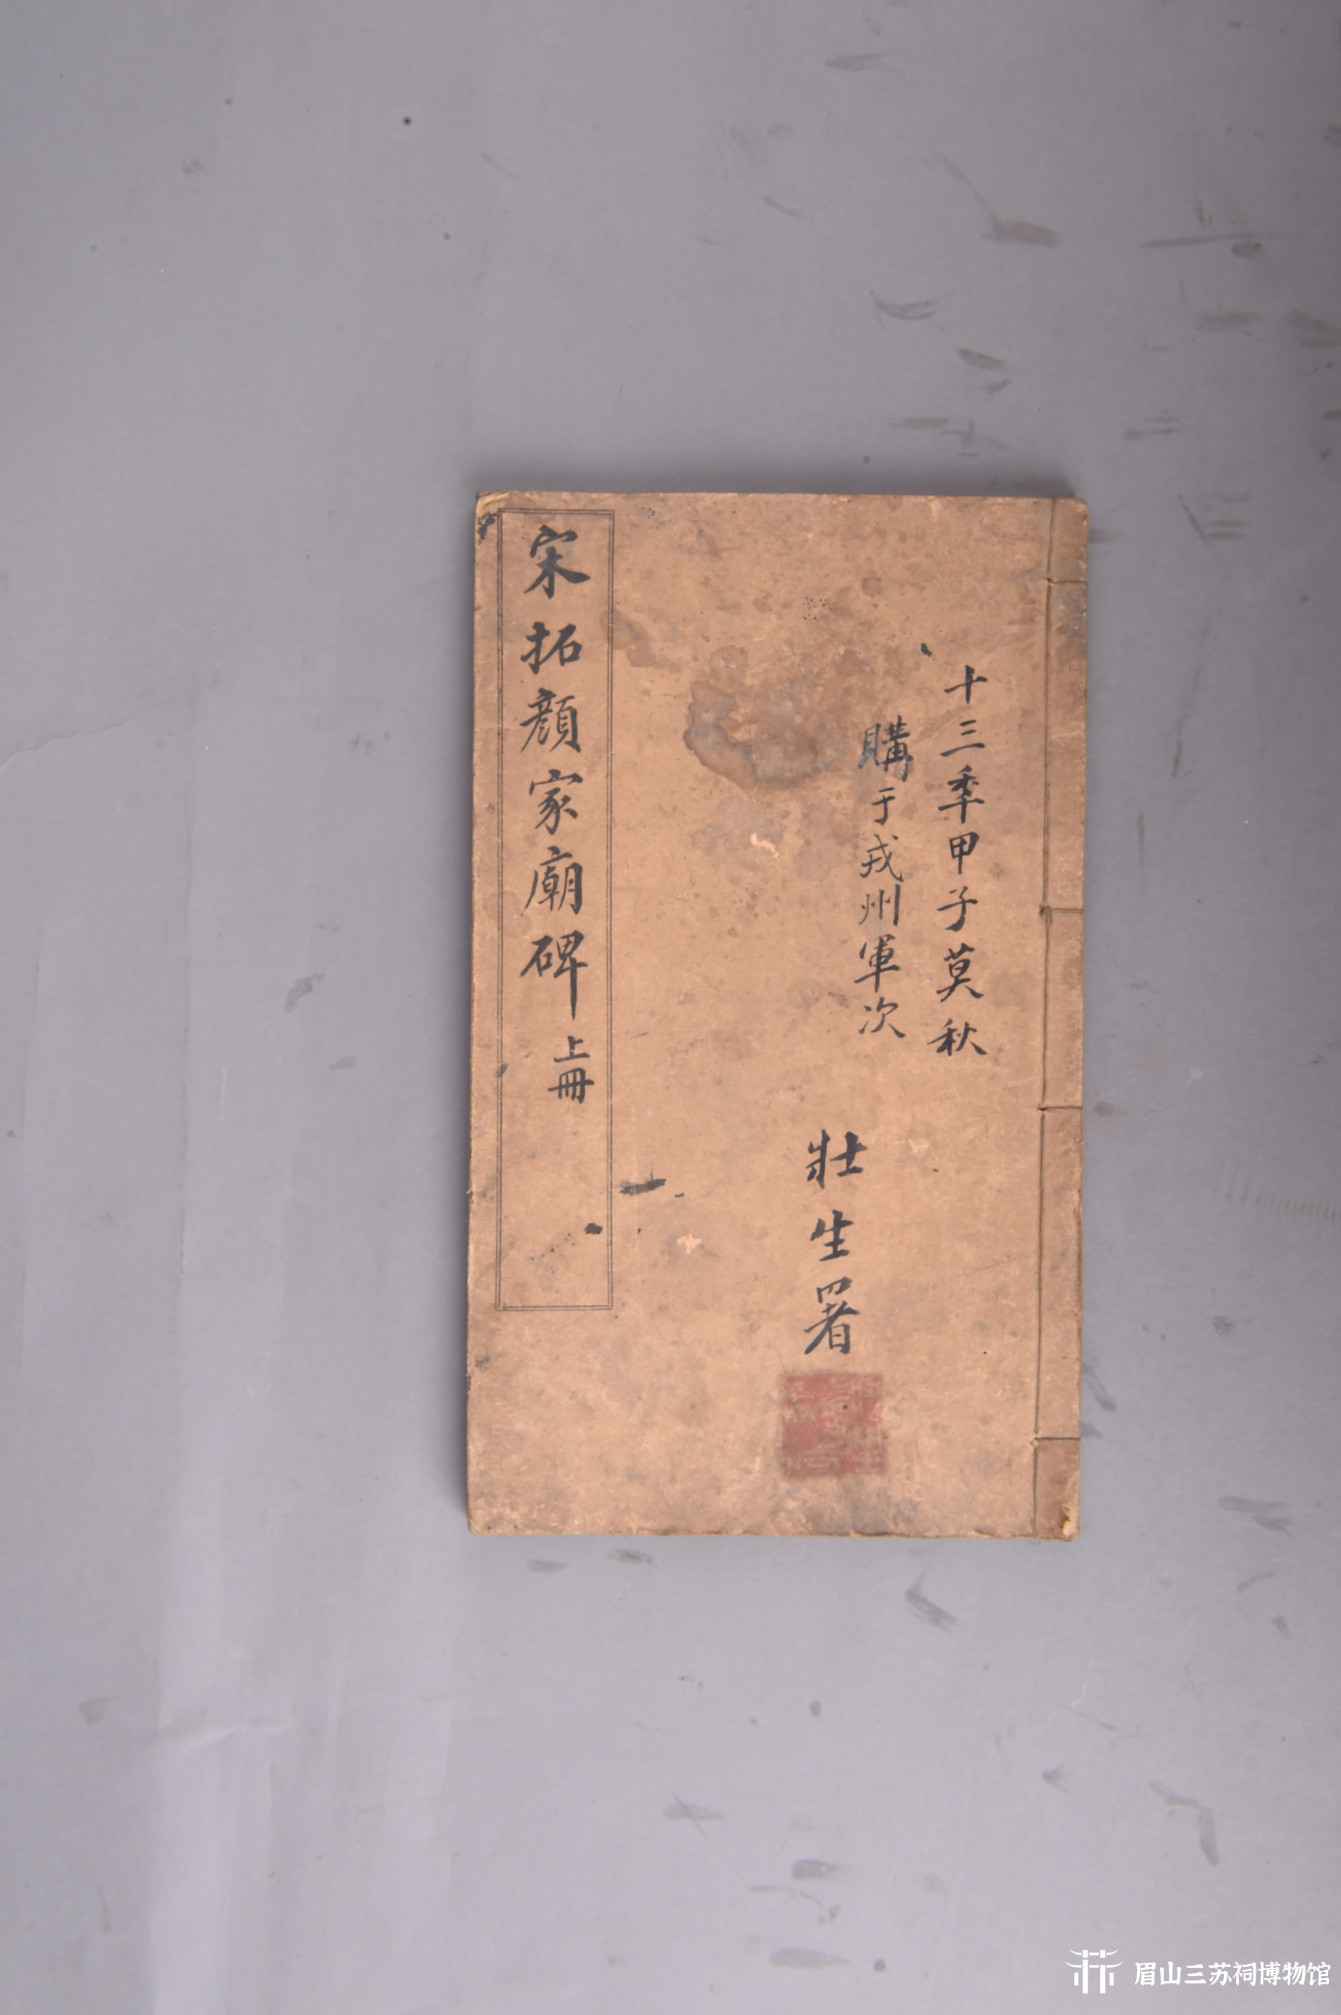 十三季甲子莫秋
購于戎州軍次
壯生署
宋拓顔家廟碑上冊
眉山三苏祠博物馆